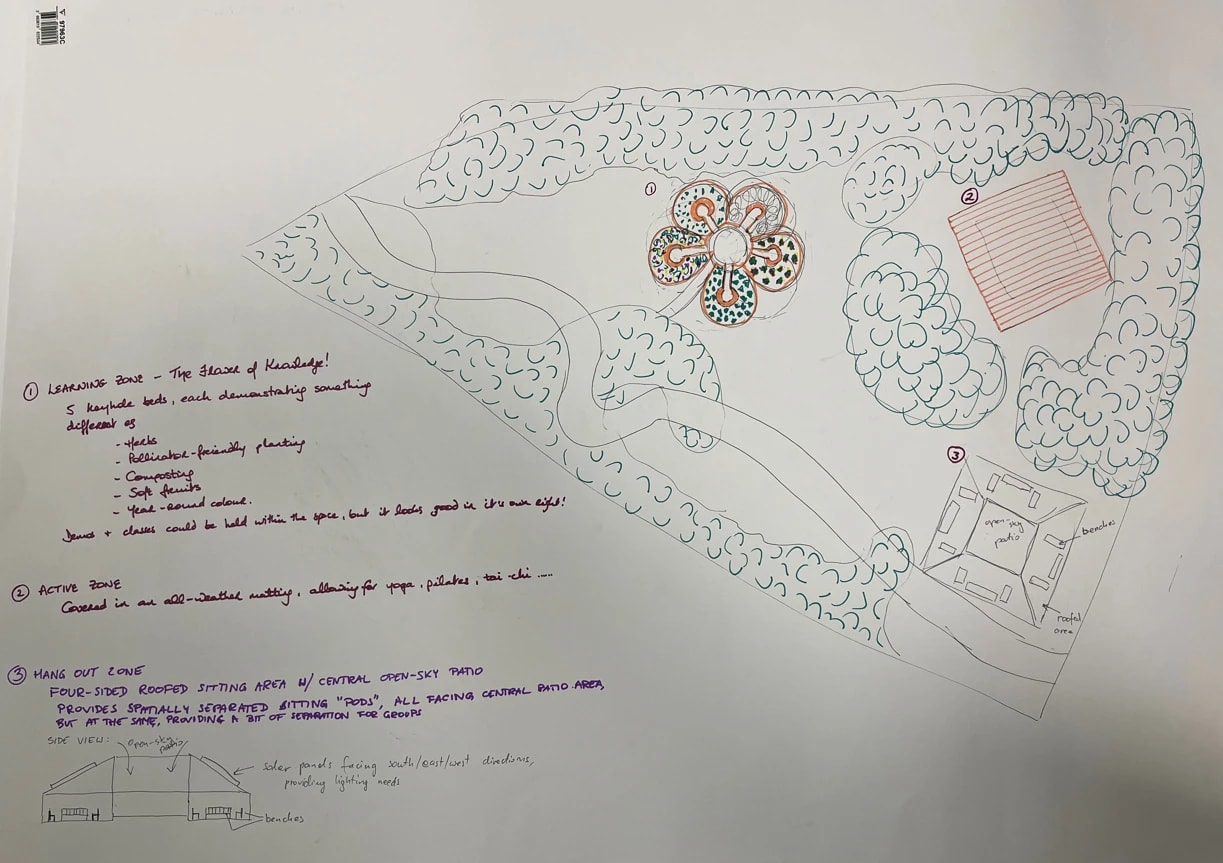 97963C
①
②
③
open-sky
patio
benches
roofed
area
① LEARNING ZONE - The Flower of Knowledge!
5 keyhole beds, each demonstrating something
different eg
- Herbs
- Pollinator-friendly planting
- Composting
- Soft fruits
- Year-round colour.
Demos + classes could be held within the space, but it looks good in it's own right!
② ACTIVE ZONE
Covered in an all-weather matting, allowing for yoga, pilates, tai-chi .....
③ HANG OUT ZONE
FOUR-SIDED ROOFED SITTING AREA W/ CENTRAL OPEN-SKY PATIO
PROVIDES SPATIALLY SEPARATED SITTING "PODS", ALL FACING CENTRAL PATIO AREA,
BUT AT THE SAME, PROVIDING A BIT OF SEPARATION FOR GROUPS
SIDE VIEW:
open-sky
patio
solar panels facing south/east/west directions,
providing lighting needs
benches